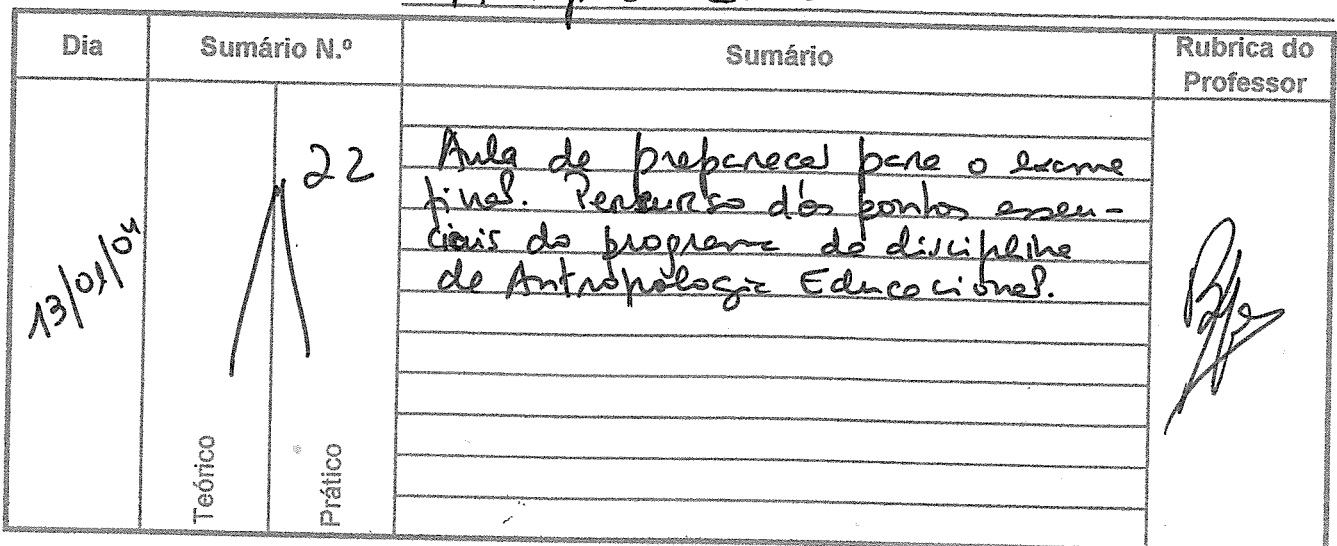 Dia
Sumário N.º
Sumário
Rubrica do
Professor
13/01/04
22
Teórico
Prático
Aula de preparação para o exame
final. Percurso dos pontos essen-
ciais do programa da disciplina
de Antropologia Educacional.